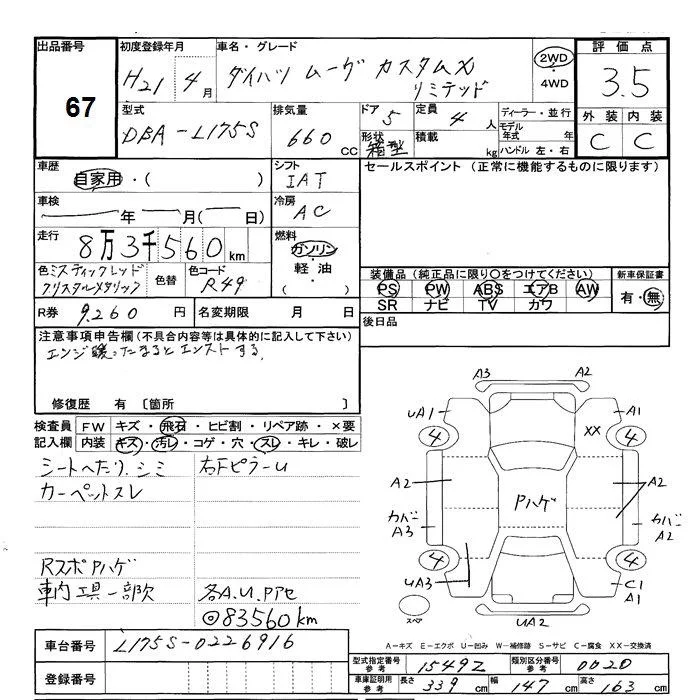 出品番号 初度登録年月 車名・グレード 評価点
67
H21年 4月 ダイハツ ムーヴ カスタムX リミテッド
2WD・4WD
3.5
型式 排気量 ドア 定員 ディーラー・並行 外装 内装
DBA-L175S 660cc 5 4人
形状 積載 モデル年式 年
箱型 kg ハンドル 左・右
C C
車歴 シフト セールスポイント (正常に機能するものに限ります)
自家用・( ) IAT
車検 冷房
年 月( 日) AC
走行 燃料
8万3千560km ガソリン・軽油・( )
色 ミスティックレッドクリスタルメタリック 色替 色コード R49
装備品 (純正品に限り〇をつけてください) 新車保証書
PS PW ABS エアB AW 有・無
SR ナビ TV カワ
R券 9,260円 名変期限 月 日
後日品
注意事項申告欄 (不具合内容等は具体的に記入して下さい)
エンジン暖ったまるとエンストする。
修復歴 有 〔箇所 〕
検査員 FW キズ・飛石・ヒビ割・リペア跡・×要
記入欄 内装 キズ・汚レ・コゲ・穴・スレ・キレ・破レ
シートへたり、シミ 右下ピラーU
カーペットスレ
Rスポハゲ
車内工具一部欠 各A.U.
◎83560km
A3 A2
UA1 A1
4 XX 4
A2 Pハゲ A2
カバーA3 カバーA2
4 4
UA3 C1 A1
スペア UA2
A-キズ E-エクボ U-凹み W-補修跡 S-サビ C-腐食 XX-交換済
車台番号 L175S-0226916
登録番号
型式指定番号 参考 15492 類別区分番号 参考 0020
車庫証明用 参考 長さ 339cm 幅 147cm 高さ 163cm